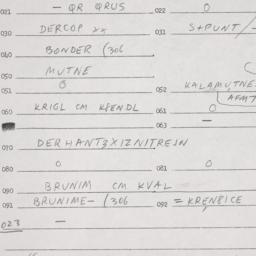 021 — QR QRUS 022 0
030 DERCOP xx 031 S+PUNT/-
040 BONDER (306
050 MUTNE
051 0 052 KALAMUTNE
060 KRIGL CM KPENDL 061 0
063 —
070 DERHANTZXIZNITREJN
080 0 081 0
090 BRUNIM CM KVAL
091 BRUNIME- (306 092 = KRENBICE
023 —